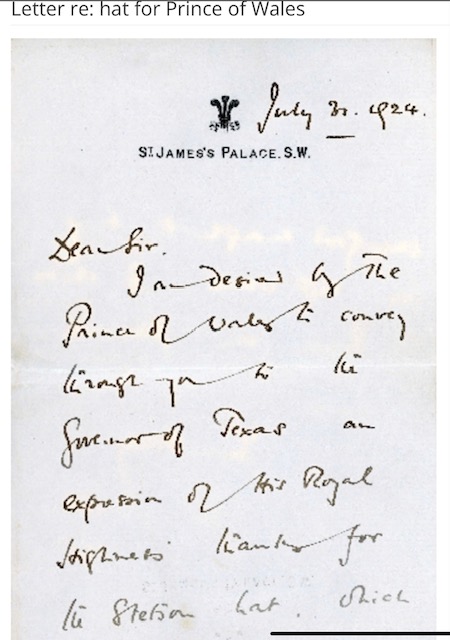 Letter re: hat for Prince of Wales
July 31. 1924.
ST. JAMES'S PALACE. S.W.
Dear Sir.
I am desired by the
Prince of Wales to convey
through you to the
Governor of Texas an
expression of His Royal
Highness' thanks for
the Stetson hat. which